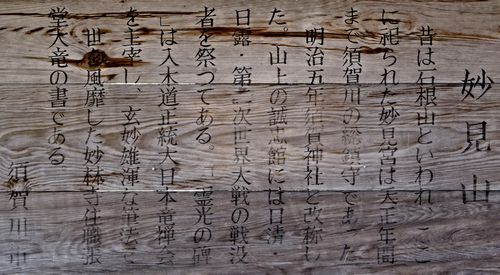 妙見山
昔は石根山といわれ、ここ
に祀られた妙見宮は天正年間
まで須賀川の総鎮守であった
明治五年須賀神社と改称し
た。山上の誠忠館には日清・
日露 第二次世界大戦の戦没
者を祭ってある。「霊光の碑
」は入木道正統大日本竜禅会
を主宰し、玄妙雄渾な筆法で
世を風靡した妙林寺住職張
堂大竜の書である
須賀川市